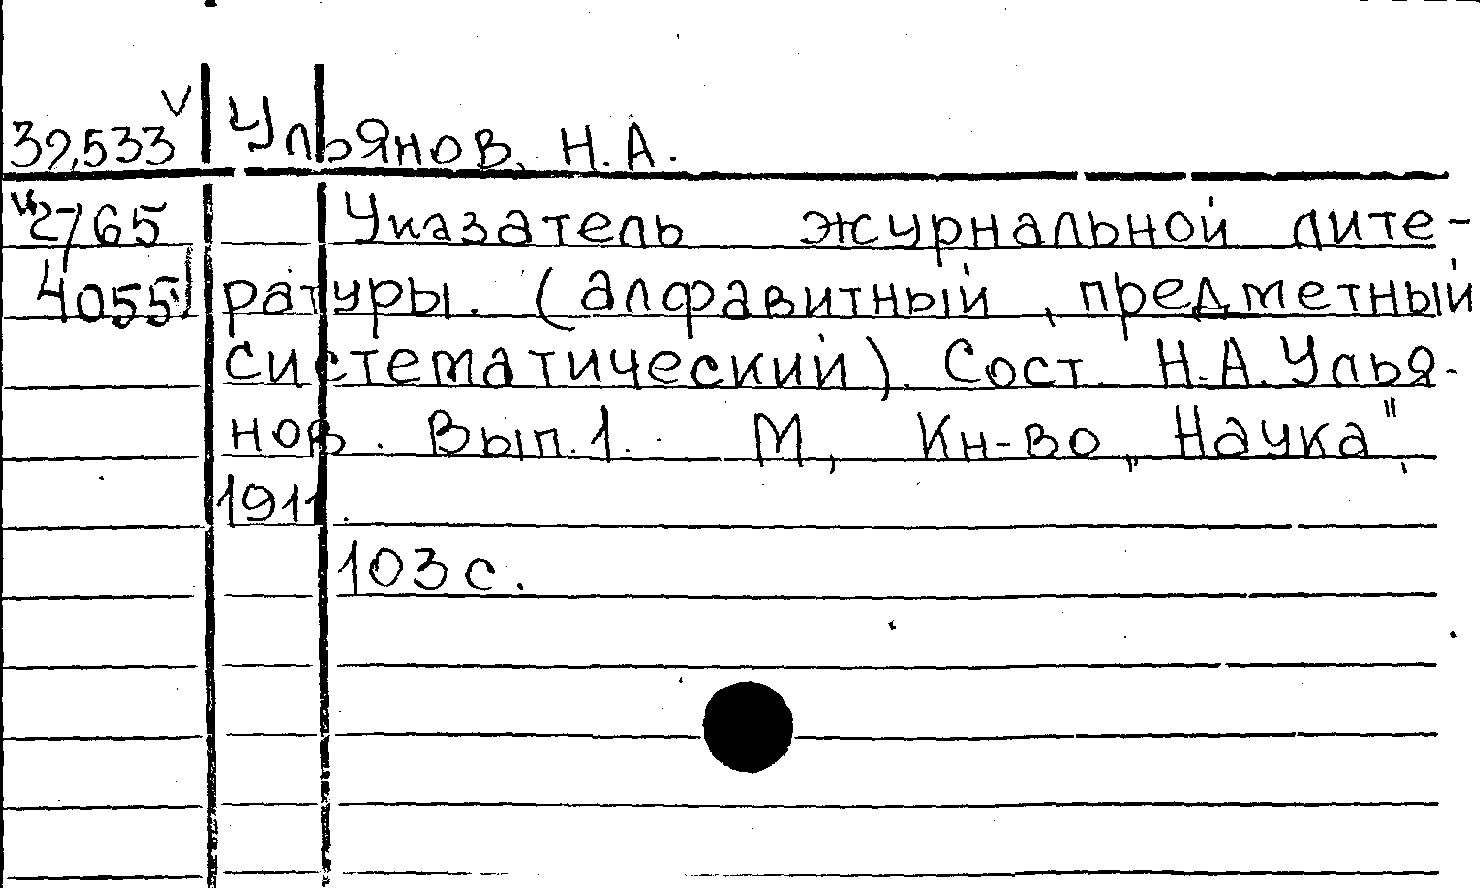 32,533 V Ульянов, Н.А.
2765 Указатель журнальной лите-
4055 ратуры. (алфавитный, предметный
систематический). Сост. Н.А. Улья-
нов. Вып. 1. М, Кн-во „Наука",
1911.
103 с.